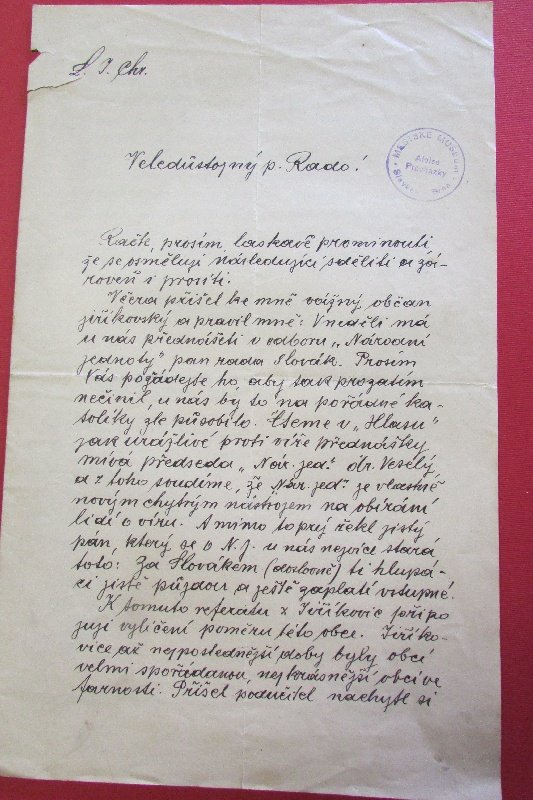 L. J. Chr.
MĚSTSKÉ MUSEUM
Aloise
Procházky
Slavkov
Brna
Veledůstojný p. Rado!
Račte, prosím, laskavě prominouti,
že se osměluji následující sděliti a zá-
roveň i prositi.
Včera přišel ke mně vážný občan
jiříkovský a pravil mně: V neděli má
u nás přednášeti v odboru „Národní
jednoty" pan rada Slovák. Prosím
Vás požádejte ho, aby tak prozatím
nečinil, u nás by to na pořádné ka-
tolíky zle působilo. Čteme v „Hlasu"
jak urážlivé proti víře přednášky
mívá předseda „Nár. jed." dr. Veselý,
a z toho soudíme, že Nár. jed." je vlastně
novým chytrým nástrojem na obírání
lidí o víru. A mimo to prý řekl jistý
pán, který se o N. J. u nás nejvíce stará
toto: Za Slovákem (doslovně) ti hlupá-
ci jistě půjdou a ještě zaplatí vstupné.
K tomuto referatu z Jiříkovic připo
juji vylíčení poměru této obce. Jiříko-
vice až nejposlednější doby byly obcí
velmi spořádanou, nejkrásnější obcí ve
farnosti. Přišel podučitel nachytl si